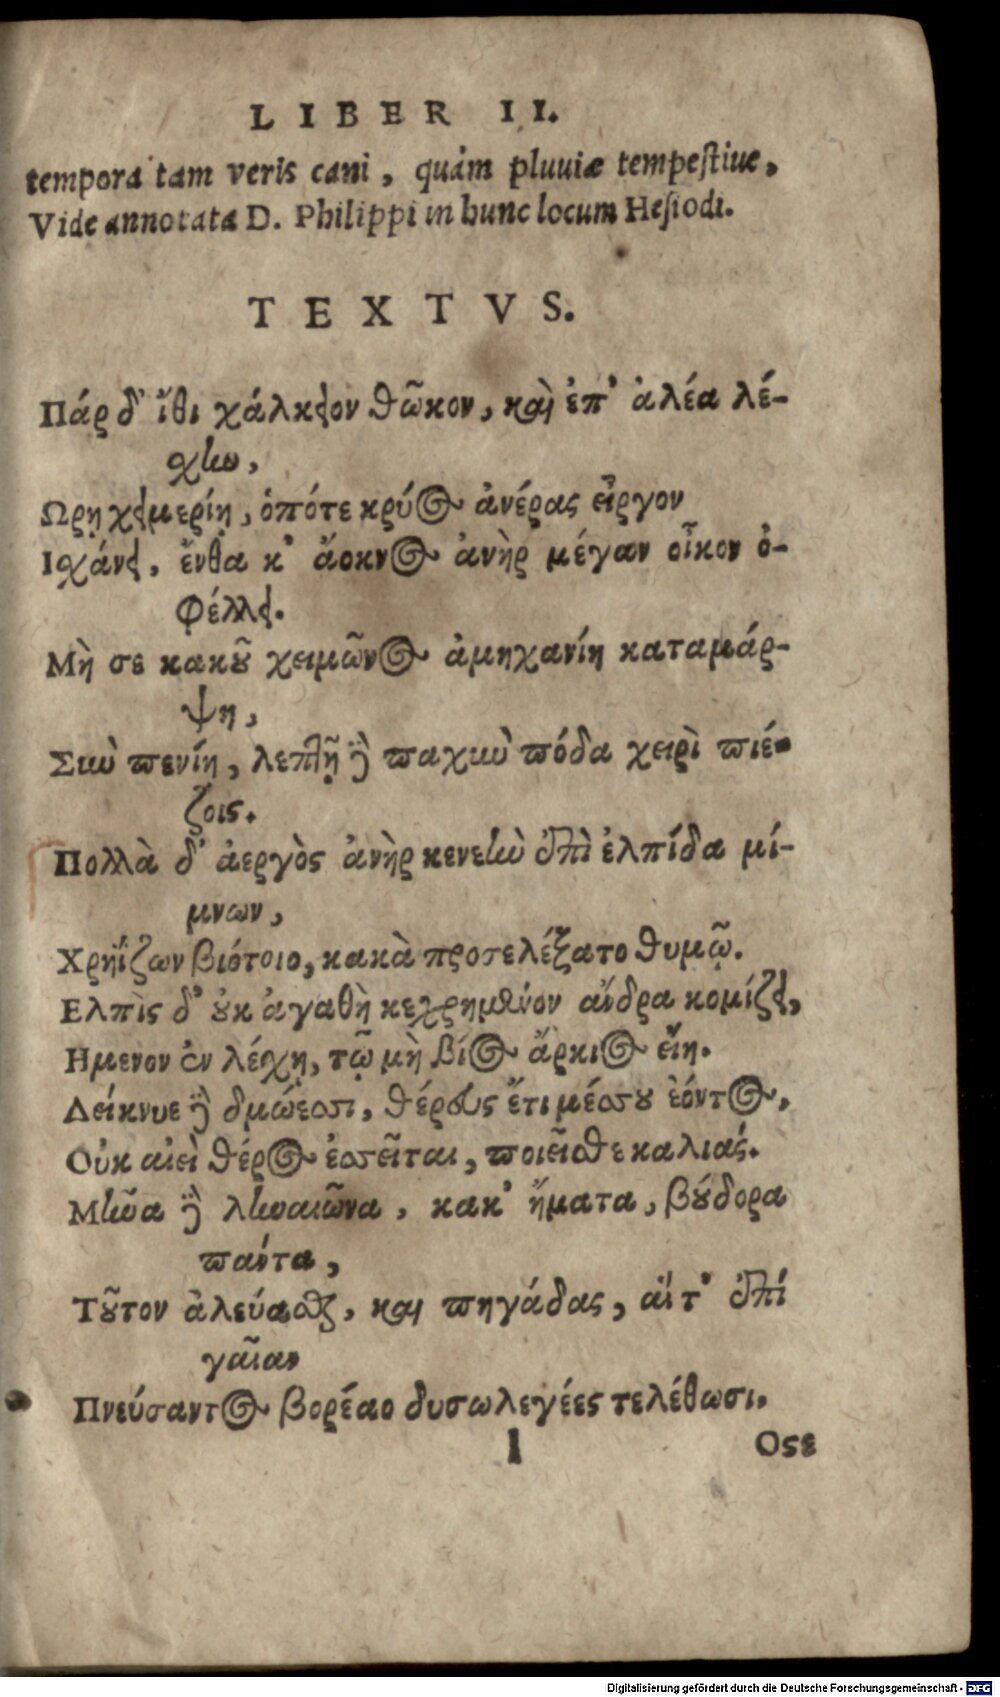 LIBER II.
tempora tam veris cani, quàm pluuiæ tempestiue,
Vide annotata D. Philippi in hunc locum Hesiodi.
TEXTVS.
Πάρ δ' ἴθι χάλκειον θῶκον, καὶ ἐπ' ἀλέα λέ-
χην,
Ωρῃ χειμερίῃ, ὁπότε κρύος ἀνέρας εἶργον
Ισχάνει, ἔνθα κ' ἄοκνος ἀνὴρ μέγαν οἶκον ὀ-
φέλλει.
Μὴ σε κακοῦ χειμῶνος ἀμηχανίη καταμάρ-
ψη,
Σιὺ πενίη, λεπτῇ δὲ παχιὺ πόδα χειρὶ πιέ-
ζοις.
Πολλὰ δ' ἀεργὸς ἀνὴρ κενεὴν ἐπὶ ἐλπίδα μί-
μνων,
Χρηΐζων βιότοιο, κακὰ προσελέξατο θυμῷ.
Ελπὶς δ' οὐκ ἀγαθὴ κεχρημένον ἄίδρα κομίζει,
Ημενον ἐν λέσχῃ, τῷ μὴ βίος ἄρκιος εἴη.
Δείκνυε δὲ δμώεσσι, θέρους ἔτι μέσσου ἐόντος,
Οὐκ αἰεὶ θέρος ἐσσεῖται, ποιεῖσθε καλιάς.
Μῆνα δὲ ληναιῶνα, κακ' ἤματα, βούδορα
πάντα,
Τοῦτον ἀλεύασθαι, καὶ πηγάδας, αἵτ' ἐπί
γαῖαν
Πνεύσαντος βορέαο δυσωλεγέες τελέθωσι.
l
Οσε
Digitalisierung gefördert durch die Deutsche Forschungsgemeinschaft - DFG